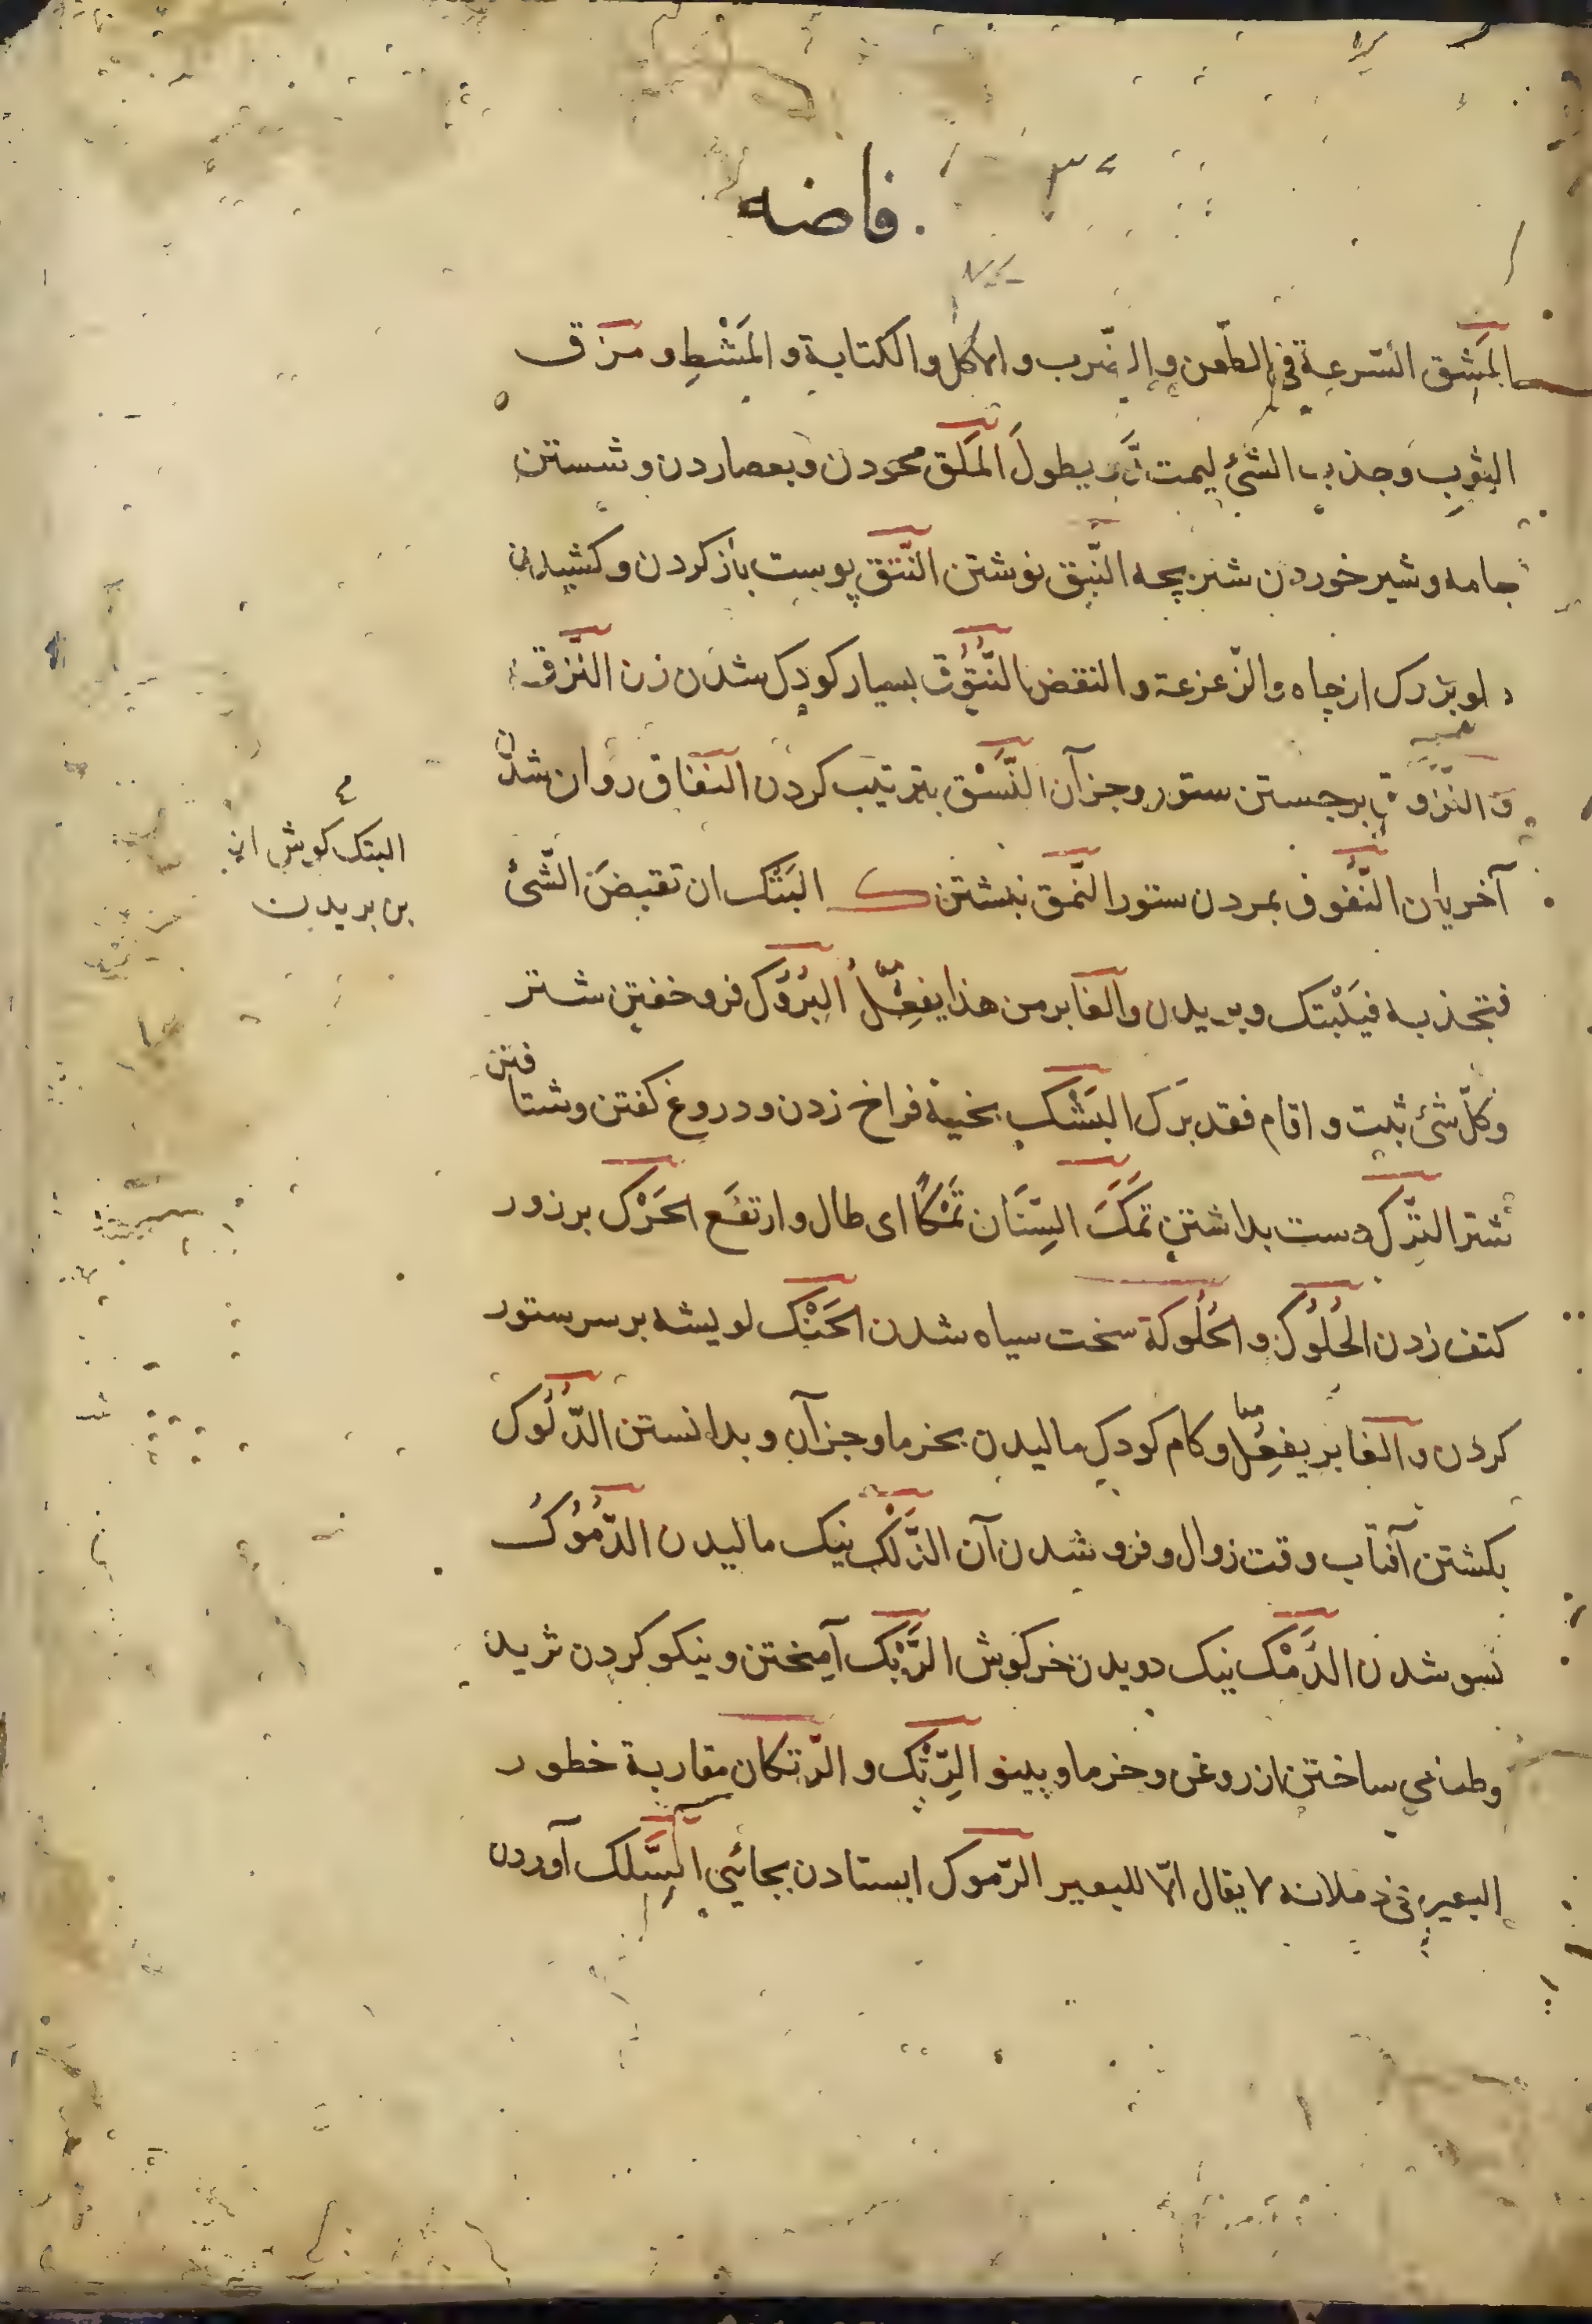 فاضه
المَشق السّرعة في الطّعن والضّرب والاكل والكتابة والمَشْطِ ومزق
الثوبِ وجذب الشئ ليمتدّ ويطولَ المَلق محودن وبعصا زدن وشستن
جامه وشير خوردن شتر بچه النّبق نوشتن النّتق پوست باز كردن وكشيدن
دلو بزرك از چاه والزّعزعة والنقض النُّتُوق بسيار كودك شدن زن النَّزق
والنّزوق برجستن ستور وجز آن النَّسْق بترتيب كردن النفاق روان شدن
آخريان النُّفُوق بمردن ستور النّمق نبشتن ك البَتْك ان تقبضَ الشّئ
فتجذبه فيَنْبتك وبريدن والغابر من هذا يفعِلُ البُرُوك فرو خفتن شتر
وكلّ شئ ثبت واقام فقد برَك البَشْك بخية فراخ زدن ودروغ كفتن وشتافتن
شتر التّرك دست بداشتن تَمَكَ السِّنَان تَمْكًا اى طال وارتفَع الحَرْك بر زور
كتف زدن الحُلُوك والحُلُوكة سخت سياه شدن الحَنْك لويشه بر سر ستور
كردن والغابر يفعِلُ معا وكام كودك ماليدن بخرما وجز آن وبدانستن الدُّلُوك
بكشتن آفتاب وقت زوال وفرو شدن آن الدَّلْك نيك ماليدن الدُّمُوكُ
نسو شدن الدَّمْك نيك دويدن خركوش الرَّبْك آميختن ونيكو كردن ثريد
وطعامي ساختن از روغن وخرما وپينو الرَّتْك والرّتكان مقاربة خطور
البعير في ذملانه لا يقال الّا للبعير الرّموك ايستادن بجائي السَّلك آوردن
البتك كوش از
بن بريدن